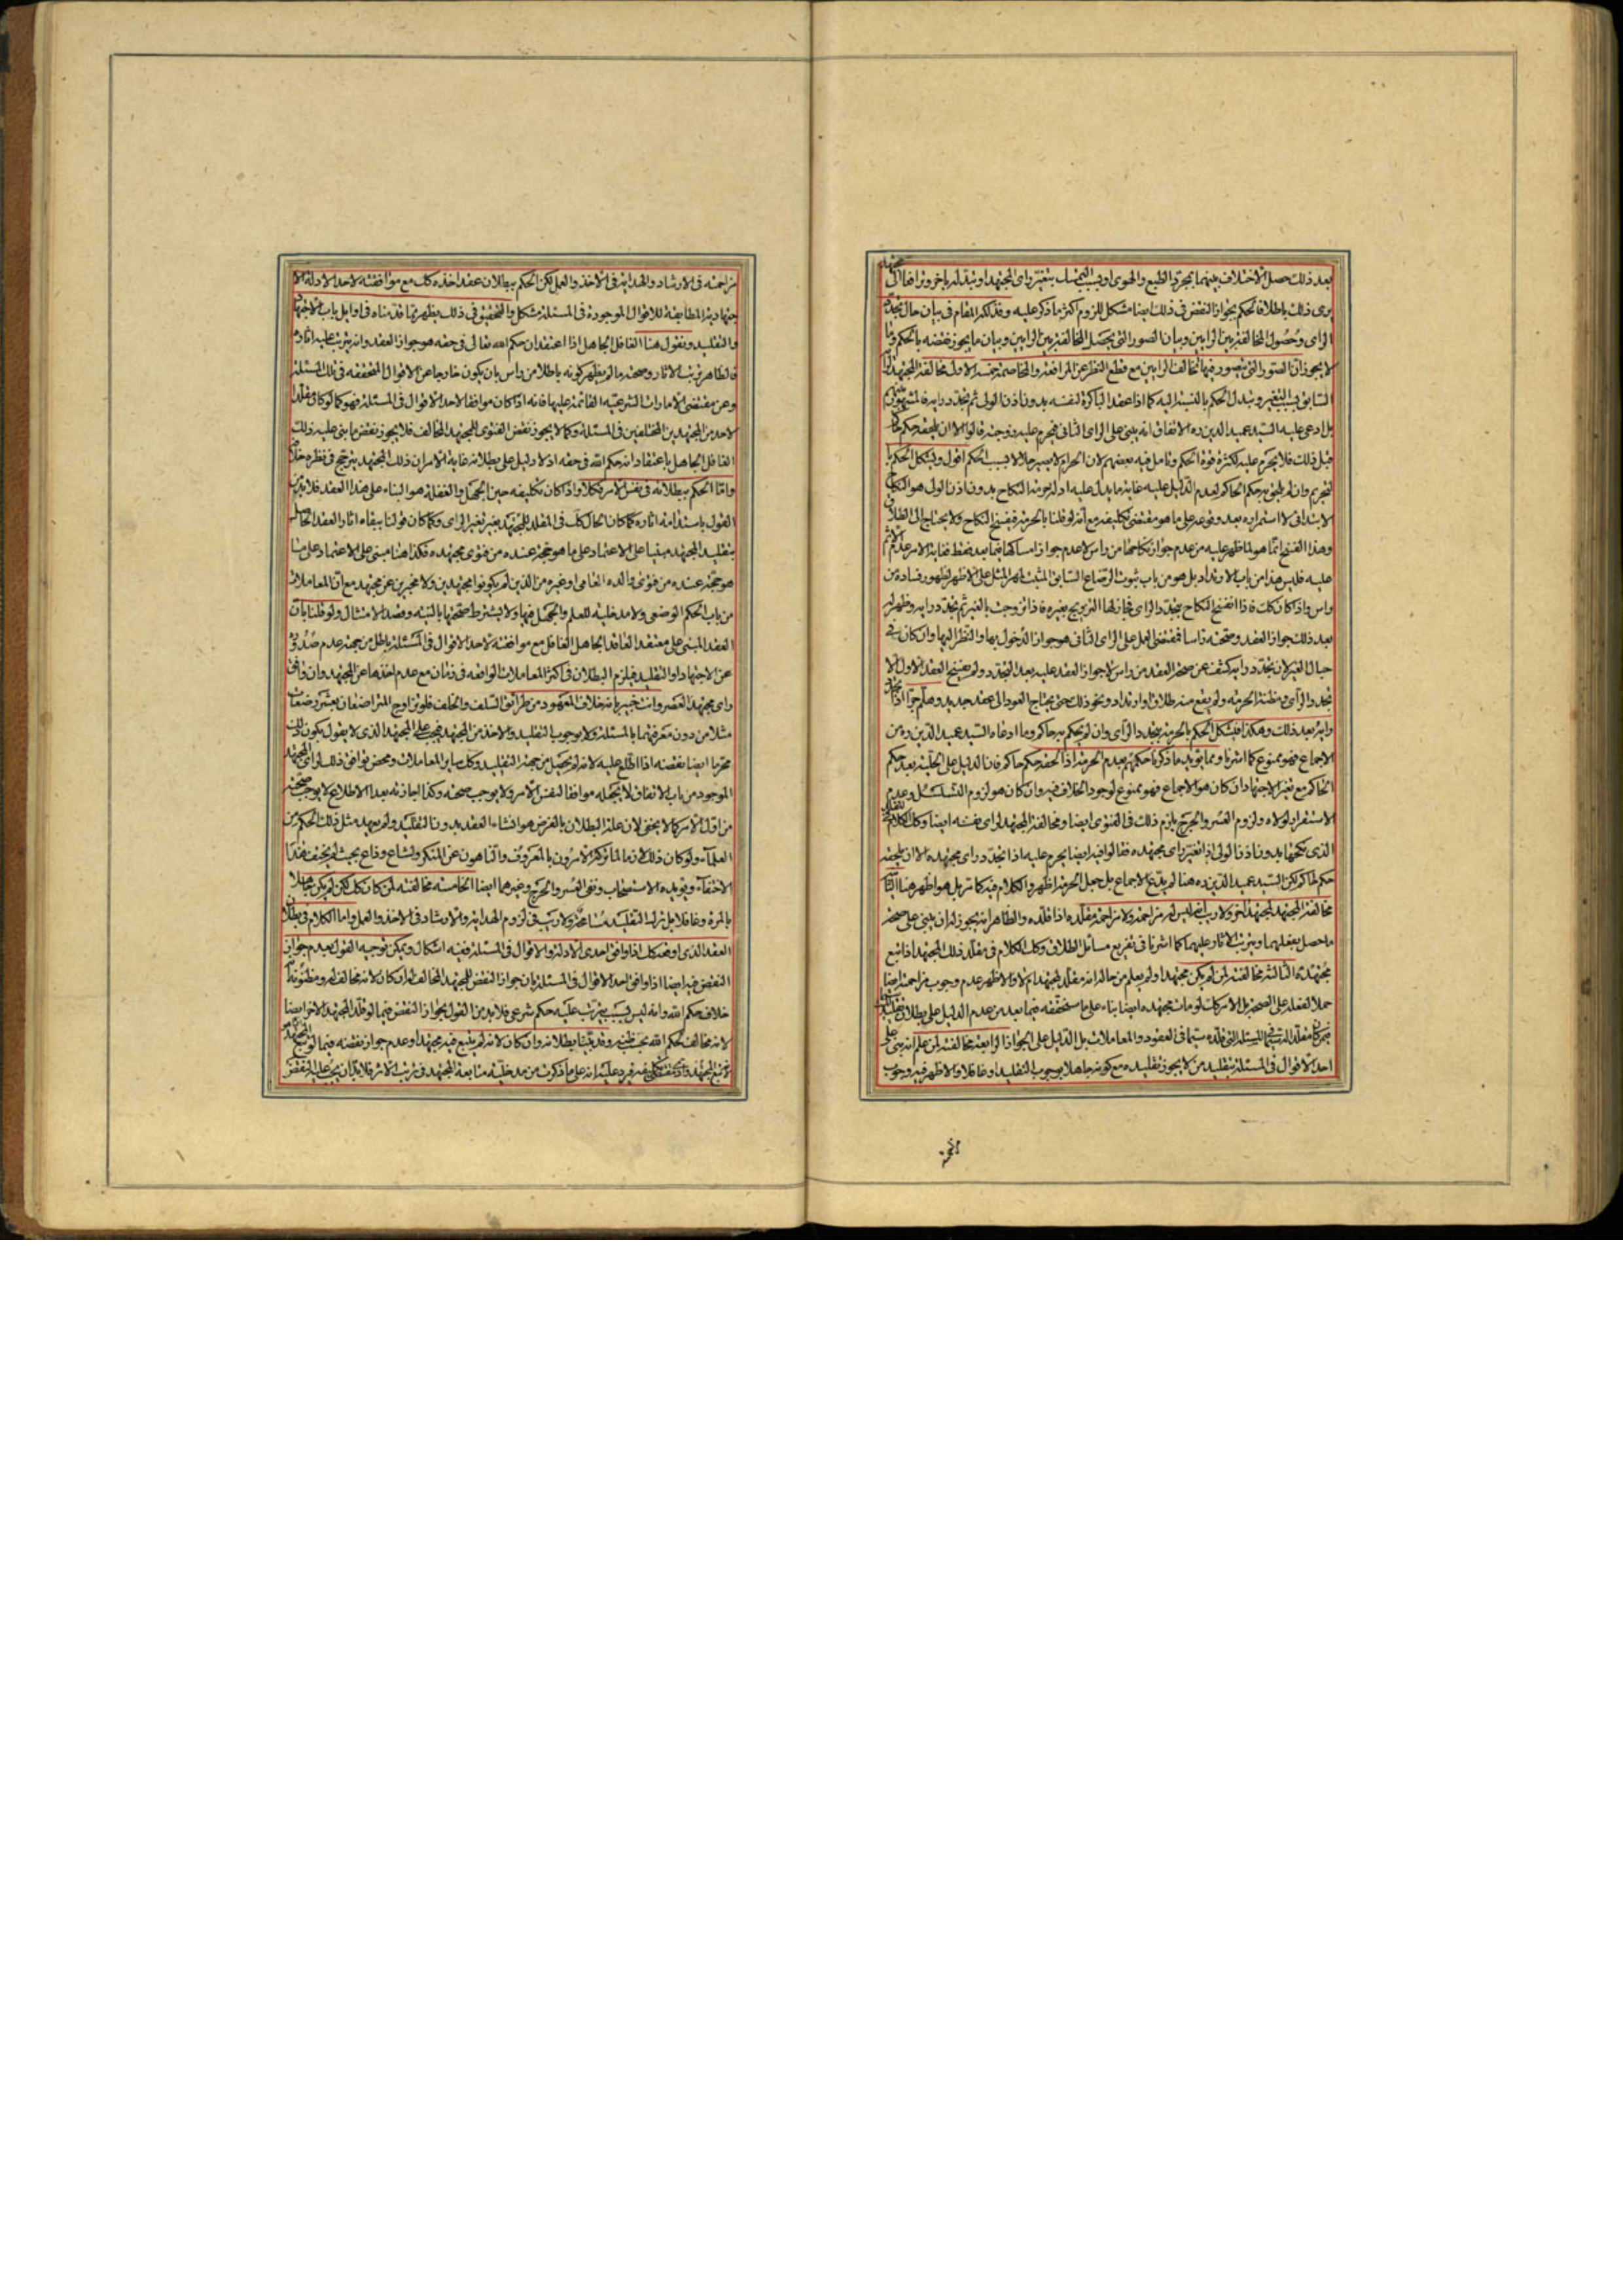 بعد ذلك حصل الاختلاف بينهما بمجرد الطبع والهوى او بسبب التمسك بتغير راى المجتهد او تبدله باخر وترافعا الى مجتهد
يرى ذلك باطلا فالحكم بجواز النقض فى ذلك ايضا مشكل للزوم اكثر ما ذكر عليه وقد ذكر المقام فى بيان حال تجدد
الراى وحصول المخالفة بين الرايين وبيان الصور التى يحصل المخالفة بين الرايين وبيان ما يجوز نقضه بالحكم وما
لا يجوز ان الصور التى يتصور فيها تخالف الرايين مع قطع النظر عن المرافعة والمخاصمة خمسة الاول مخالفة المجتهد لرايه
السابق بسبب التغير وتبدل الحكم بالنسبة اليه كما اذا عقد الباكرة لنفسه بدون اذن الولى ثم تجدد رايه فالمشهور
بل ادعى عليه السيد عميد الدين ره الاتفاق انه يبنى على الراى الثانى فيحرم عليه زوجته قالوا الا ان يلحقه حكم حاكم
قبل ذلك فلا يحرم عليه لكثرة قوة الحكم وتامل فيه بعضهم لان الحرام لا يصير حلالا بسبب الحكم اقول ويشكل الحكم با
لتحريم وان لم يلحق به حكم الحاكم لعدم الدليل عليه غاية ما يدل عليه ادلة حرمة النكاح بدون اذن الولى هو النكاح
الابتدائى لا استمراره بعد وقوعه على ما هو مقتضى تكليفه مع انه لو قلنا بالحرمة فيفسخ النكاح ولا يحتاج الى الطلاق
وهذا الفسخ انما هو لما ظهر عليه من عدم جواز نكاحها من راس لا عدم جواز امساكها فيما بعد فقط
عليه فليس هذا من باب الارتداد بل هو من باب ثبوت الرضاع السابق
راس واذا كان كك فاذا انفسخ النكاح بتجدد الراى فجاز لها التزويج بغيره فاذا تزوجت بالغير ثم تجدد رايه وظهر له
بعد ذلك جواز العقد وصحته راسا فمقتضى العمل على الراى الثانى هو جواز الدخول بها والنظر اليها وان كان فى
حبال الغير لان تجدد رايه كشف عن صحة العقد من راس لا جواز العقد عليه بعد التجدد ولم يفسخ العقد الاول الا
تجدد الراى ومظنة الحرمة ولم يقع منه طلاق او ارتداد ونحو ذلك حتى يحتاج العود الى عقد جديد وهلم جرا اذا تجدد
رايه بعد ذلك وهكذا فيشكل الحكم بالحرمة بتجدد الراى وان لم يحكم به حاكم وما ادعاه السيد عميد الدين ره من
الاجماع فهو ممنوع كما اشرنا ومما يؤيد ما ذكرنا حكمهم بعدم الحرمة اذا لحقه حكم حاكم فان الدليل على الحلية بعد حكم
الحاكم مع تغير الاجتهاد ان كان هو الاجماع فهو ممنوع لوجود الخلاف فيه وان كان هو لزوم التسلسل وعدم
الاستقرار لولاه ولزوم العسر والحرج يلزم ذلك فى الفتوى ايضا ومخالفة المجتهد لراى نفسه ايضا وكك الكلام فى المقلد
الذى نكحها بدون اذن الولى اذا تغير راى مجتهده فقالوا فيه ايضا يحرم عليه اذا تجدد راى مجتهده الا ان يلحقه
حكم حاكم لكن السيد عميد الدين ره هنا لم يدع الاجماع بل جعل الحرمة اظهر والكلام فيه كما مر بل هو اظهر هنا الثانية
مخالفة المجتهد لمجتهد اخر ولا ريب انه ليس له مزاحمته ولا مزاحمة مقلده اذا قلده والظاهر انه يجوز له ان يبنى على صحة
ما حصل بفعلهما ويترتب الاثار عليهما كما اشرنا فى تفريع مسائل الطلاق وكك الكلام فى مقلد ذلك المجتهد اذا تبع
مجتهده الثالثة مخالفته لمن لم يكن مجتهدا ولم يعلم من حاله انه مقلد لمجتهد ام لا والاظهر عدم وجوب مزاحمته ايضا
حملا لفعله على الصحة بل الامر كك لو مات مجتهده ايضا بناء على ما سنحققه فيما بعد من عدم الدليل على بطلان تقليد الميت
سيما فى العقود والمعاملات بل الدليل على الجواز الرابعة مخالفته لمن علم انه بنى على
احد الاقوال فى المسئلة بتقليد من لا يجوز تقليده مع كونه جاهلا بوجوب التقليد او غافلا والاظهر فيه وجوب
مزاحمته فى الارشاد والهداية فى الاخذ والعمل لكن الحكم ببطلان عقد اخذه كك مع موافقته لاحد الادلة الا
جتهادية المطابقة للاقوال الموجودة فى المسئلة مشكل والتحقيق فى ذلك يظهر مما قدمناه فى اوايل باب الاجتهاد
والتقليد ونقول هنا الغافل الجاهل اذا اعتقد ان حكم الله تعالى فى حقه هو جواز العقد وانه يترتب عليه اثاره
فالظاهر ترتب الاثار وصحته ما لم يظهر كونه باطلا من راس بان يكون خارجا عن الاقوال المحققة فى تلك المسئلة
وعن مقتضى الامارات الشرعية القائمة عليها فانه اذا كان موافقا لاحد الاقوال فى المسئلة فهو كما لو كان مقلدا
لاحد من المجتهدين المختلفين فى المسئلة وكما لا يجوز نقض الفتوى للمجتهد المخالف فلا يجوز نقض ما بنى عليه ذلك
الغافل الجاهل باعتقاد انه حكم الله فى حقه اذ لا دليل على بطلانه غاية الامر ان ذلك المجتهد يترجح فى نظره خلافه
واما الحكم ببطلانه فى نفس الامر فكلا واذا كان تكليفه حين الجهل والغفلة هو البناء على هذا العقد فلا بد من
القول باستدامة اثاره فكما كان الحال كك فى المقلد للمجتهد بغير تغير الراى وكما كان قولنا ببقاء اثار العقد الحاصلة
بتقليد المجتهد مبنيا على الاعتماد على ما هو حجة عنده من فتوى مجتهده فكذا هنا مبنى على الاعتماد على ما
هو حجة عنده من فتوى والده العامى او غيره من الذين لم يكونوا مجتهدين ولا مخبرين عن مجتهد مع ان المعاملات
من باب الحكم الوضعى ولا مدخلية للعلم والجهل فيها ولا يشترط صحتها بالنية وقصد الامتثال ولو قلنا بان
العقد المبنى على معتقد العاقد الجاهل الغافل مع موافقته لاحد الاقوال فى المسئلة باطل من جهة عدم صدوره
عن الاجتهاد او التقليد فيلزم البطلان فى اكثر المعاملات الواقعة فى زمان مع عدم اخذها عن المجتهد وان وافق
راى مجتهد العصر وانت خبير بانه خلاف المعهود من طرائق السلف والخلف فلو تزاوج المتراضعان بعشر رضعات
مثلا من دون معرفتهما بالمسئلة ولا بوجوب التقليد والاخذ من المجتهد فيجب على المجتهد الذى لا يقول بكون ذلك
محرما ايضا نقضه اذا اطلع عليه لانه لم يحصل من جهة التقليد وكك ساير المعاملات ومحض توافق ذلك لراى المجتهد
الموجود من باب الاتفاق لا يجعله موافقا لنفس الامر ولا يوجب صحته وكذا اجازته بعد الاطلاع لا يوجب صحته
من اول الامر كما لا يخفى لان علة البطلان بالفرض هو انشاء العقد بدون التقليد ولم يعهد مثل ذلك الحكم من
العلماء ولو كان ذلك لازما لما تركه الامرون بالمعروف والناهون عن المنكر ولشاع وذاع بحيث لم يختف هذا
الاختفاء ويؤيده الاستصحاب ونفى العسر والحرج وغيرهما ايضا الخامسة مخالفته لمن كان كك لكن لم يكن جاهلا
بالمرة وغافلا بل ترك التقليد مسامحة ولا ريب فى لزوم الهداية والارشاد فى الاخذ والعمل واما الكلام فى بطلان
العقد الذى اوقعه كك اذا وافق احدى الادلة والاقوال فى المسئلة ففيه اشكال ويمكن توجيه القول بعدم جواز
النقض فيه ايضا اذا وافق احد الاقوال فى المسئلة بان جواز النقض للمجتهد المخالف له ان كان لانه مخالف له ومظنونه
خلاف حكم الله وانه ليس بسبب يترتب عليه حكم شرعى فلا بد من القول بجواز النقض فيما لو قلد المجتهد الاخر ايضا
لانه مخالف لحكم الله بحسب ظنه وقد بينا بطلانه وان كان لانه لم يتبع فيه مجتهدا وعدم جواز نقضه فيما لو
تبع المجتهد فيرد عليه انه على ما ذكرت من مدخلية متابعة المجتهد فى ترتب الاثر فلا بد ان يجب عليه النقض